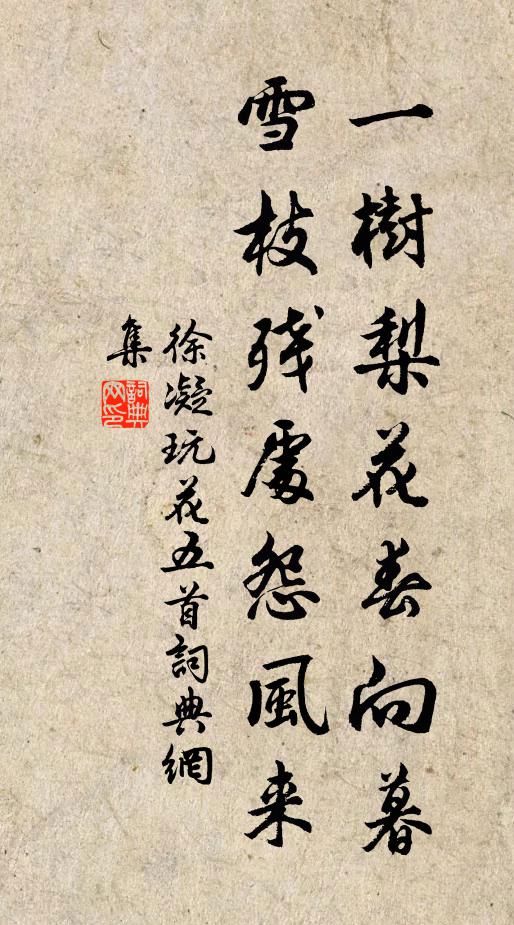 一樹梨花春向暮
雪枝残處怨風来
徐凝玩花五首詞典網
集
詞典
网印